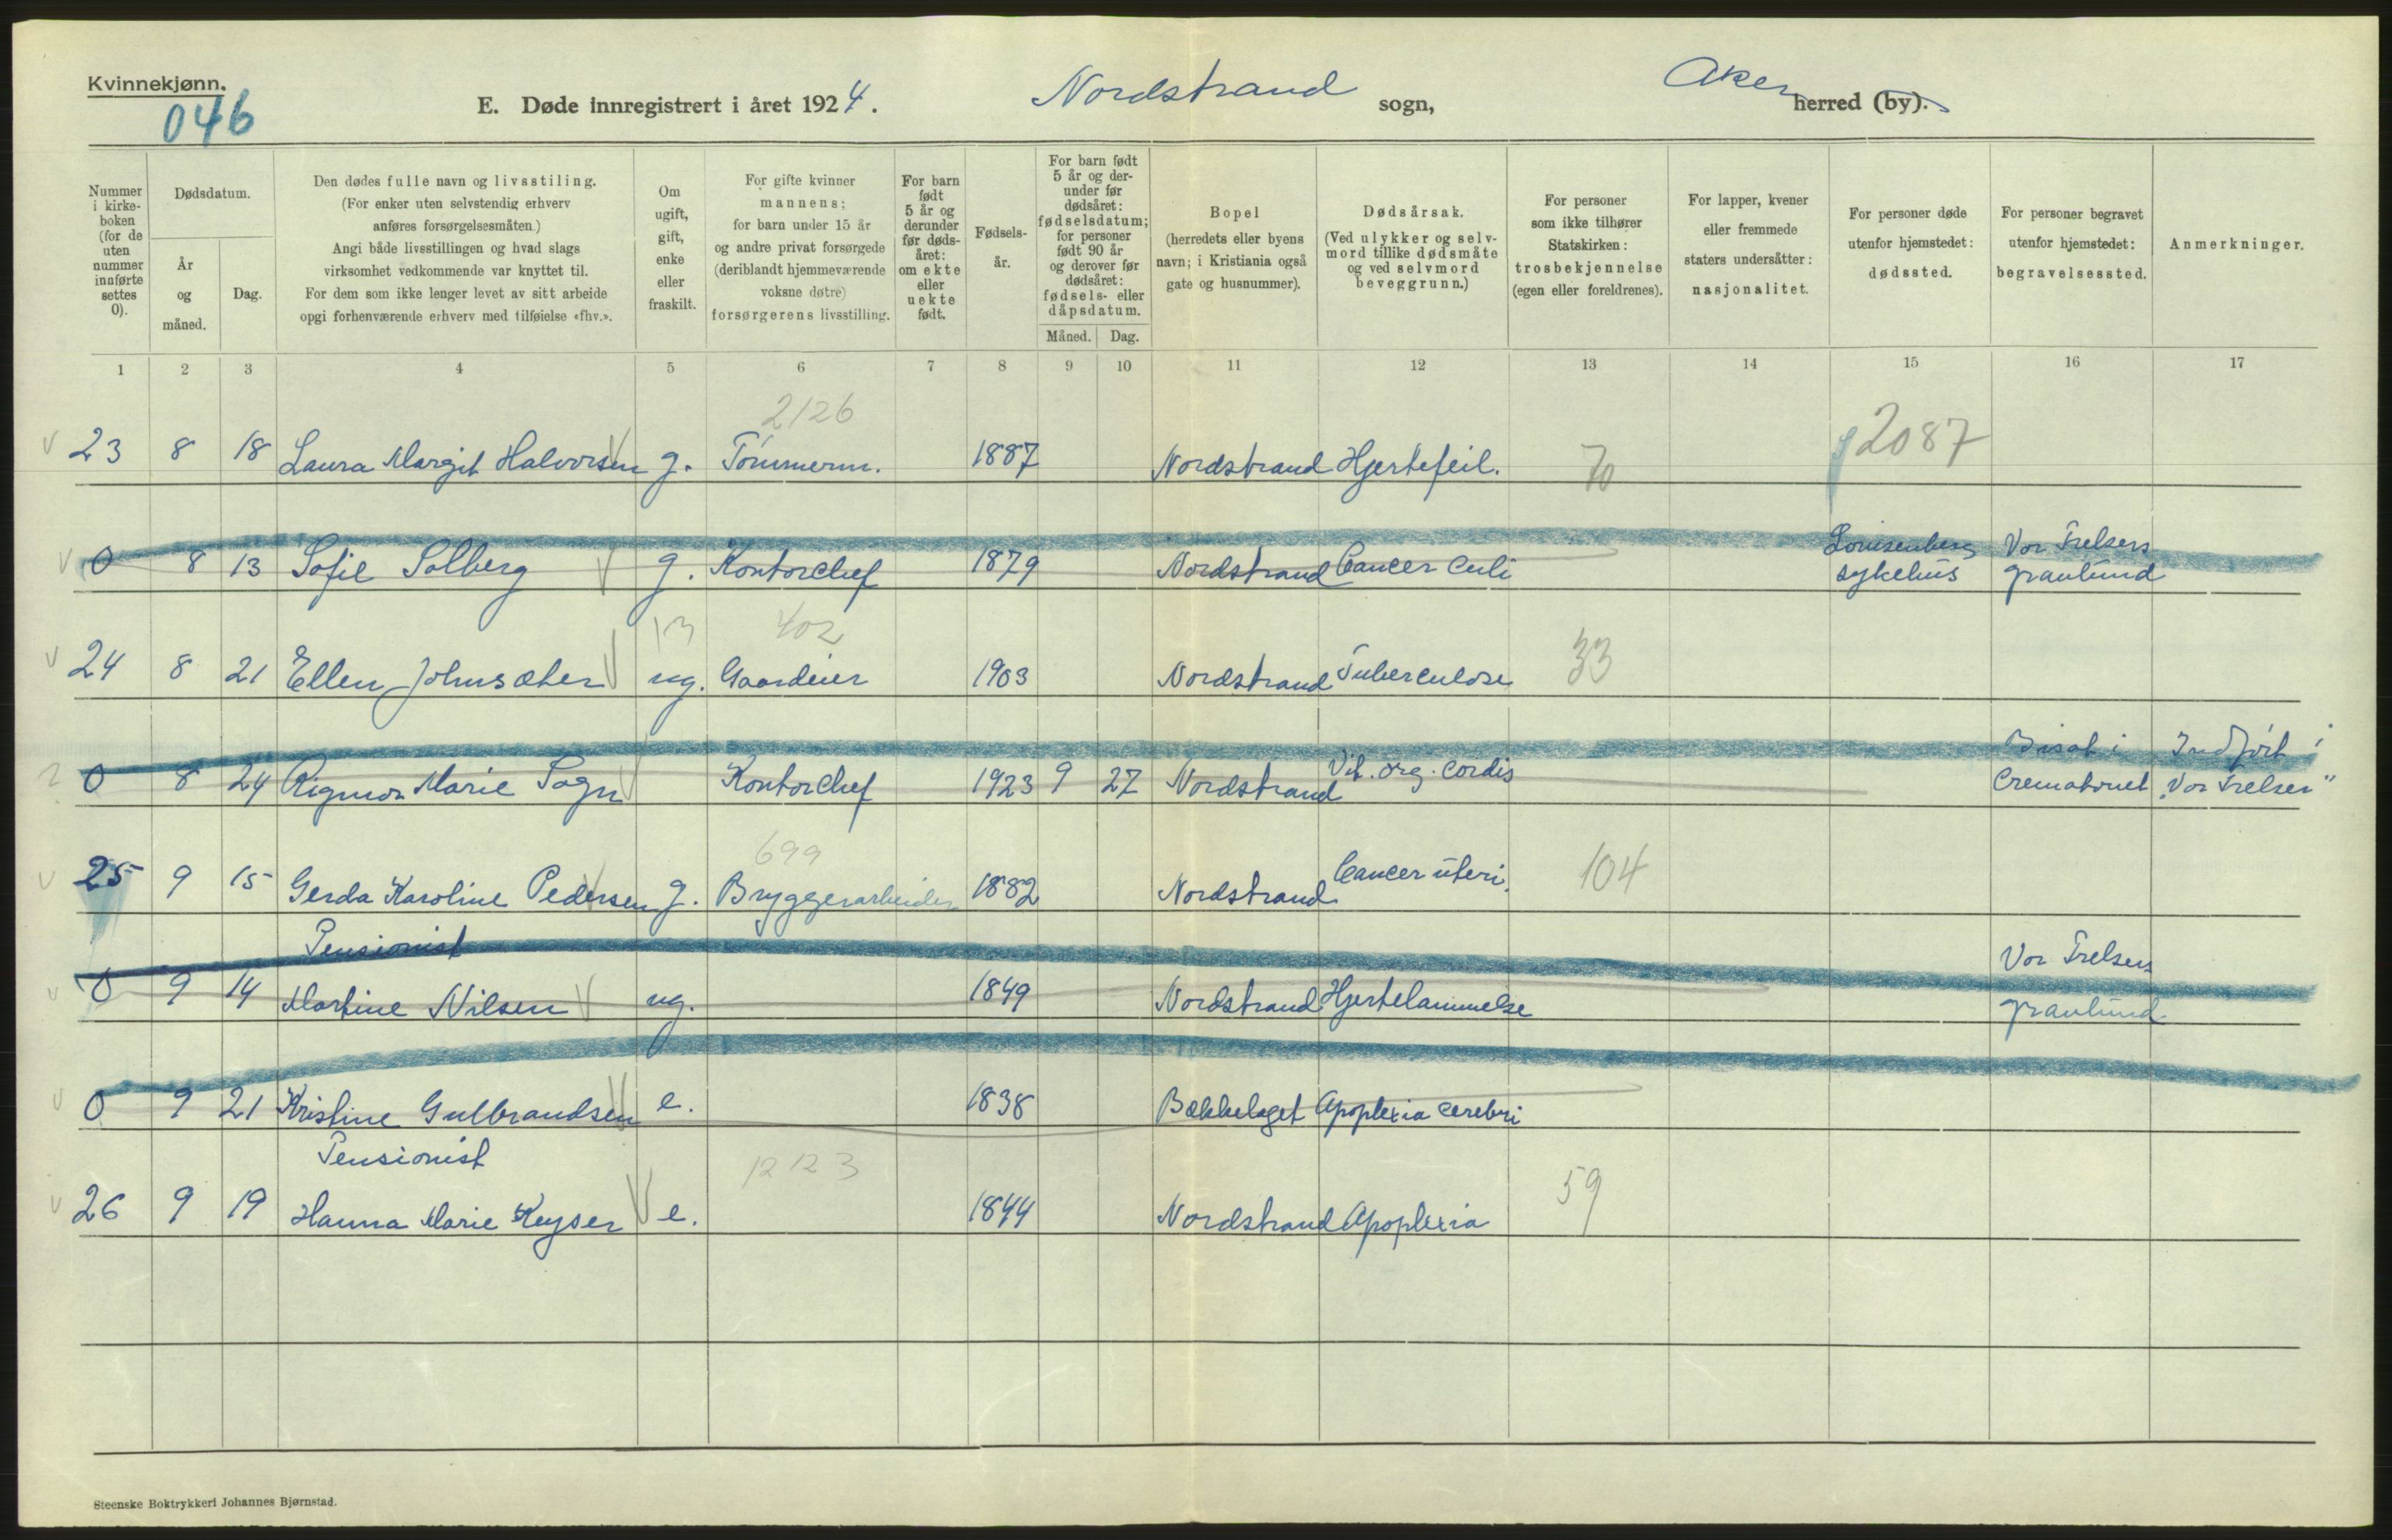 Kvinnekjønn.
046
E. Døde innregistrert i året 1924. Nordstrand sogn, Aker herred (by).
Nummer i kirke-boken (for de uten nummer innførte settes 0).
Dødsdatum.
År og måned.
Dag.
Den dødes fulle navn og livsstiling.
(For enker uten selvstendig erhverv
anføres forsørgelsesmåten.)
Angi både livsstillingen og hvad slags
virksomhet vedkommende var knyttet til.
For dem som ikke lenger levet av sitt arbeide
opgi forhenværende erhverv med tilføielse «fhv.».
Om ugift, gift, enke eller fraskilt.
For gifte kvinner
mannens;
for barn under 15 år
og andre privat forsørgede
(deriblandt hjemmeværende
voksne døtre)
forsørgerens livsstilling.
For barn født 5 år og derunder før døds-året: om ekte eller uekte født.
Fødsels-år.
For barn født
5 år og der-
under før
dødsåret:
fødselsdatum;
for personer
født 90 år
og derover før
dødsåret:
fødsels- eller
dåpsdatum.
Måned. Dag.
Bopel
(herredets eller byens
navn; i Kristiania også
gate og husnummer).
Dødsårsak.
(Ved ulykker og selv-
mord tillike dødsmåte
og ved selvmord
beveggrunn.)
For personer
som ikke tilhører
Statskirken:
trosbekjennelse
(egen eller foreldrenes).
For lapper, kvener
eller fremmede
staters undersåtter:
nasjonalitet.
For personer døde
utenfor hjemstedet:
dødssted.
For personer begravet
utenfor hjemstedet:
begravelsessted.
Anmerkninger.
1 2 3 4 5 6 7 8 9 10 11 12 13 14 15 16 17
2126
23 8 18 Laura Margit Halvorsen g. Tømmerm. 1887 Nordstrand Hjertefeil. 70 2087
0 8 13 Sofie Solberg g. Kontorchef 1879 Nordstrand Cancer Lovisenberg sykehus Vor Frelsers gravlund
13 402
24 8 21 Ellen Johnsæter ug. Gaardeier 1903 Nordstrand Tuberculose 33
0 8 24 Rigmor Marie Sogn Kontorchef 1923 9 27 Nordstrand Vit. org. cordis Bisat i Crematoriet Indført i „Vor Frelser"
699
25 9 15 Gerda Karoline Pedersen g. Bryggeriarbeider 1882 Nordstrand Cancer uteri. 104
Pensionist
0 9 14 Martine Nilsen ug. 1849 Nordstrand Hjertelammelse Vor Frelsers gravlund
0 9 21 Kristine Gulbrandsen e. 1838 Bækkelaget Apoplexia cerebri
Pensionist
12123
26 9 19 Hanna Marie Keyser e. 1844 Nordstrand Apoplexia 59
Steenske Boktrykkeri Johannes Bjørnstad.